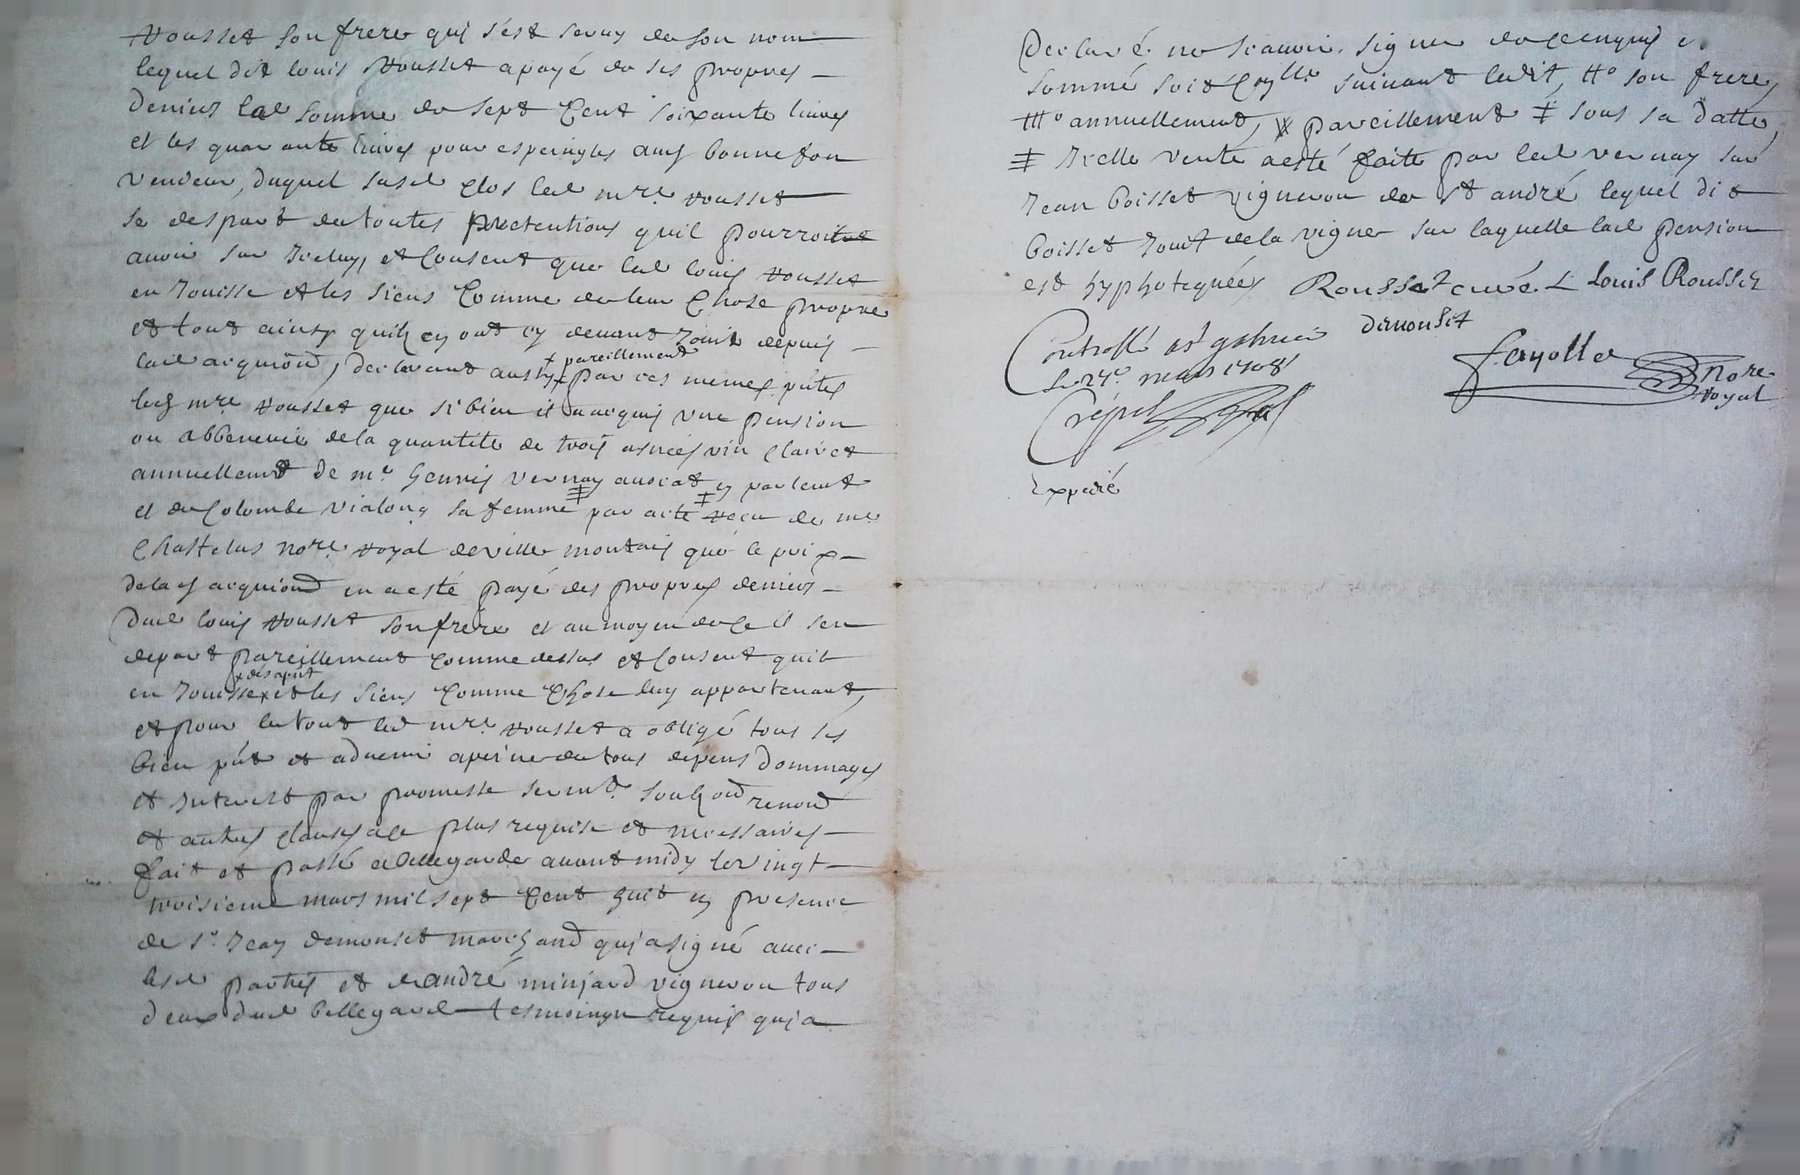 Rousset son frere qui s'est servy de son nom
lequel dit louis Rousset a payé de ses propres
deniers lad somme de sept Cent soixante livres
et les quarante livres pour espeingles aud bonnefon
vendeur, duquel susd Clos led mre. rousset
se despart de toutes pretentions quil pourroit
avoir sur Iceluy, et Consent que led louis rousset
en Jouisse et les siens Comme de leur Chose propre
et tout ainsy quils en ont cy devant Jouit depuis
lad acquiōn, declarant aussy ‡ par ces mesmes pn̄tes
‡ pareillement
led mre. rousset que si bien il a acquis une pension
ou abbenevis de la quantité de trois asnées vin Clairet
annuellemt de me. henris vernay avocat en parlemt
et de Colombe vialong sa femme ‡ par acte ‡ receu de me
Chastelus nore. royal de ville montais que le prix
de lad acquiond en a esté payé des propres deniers
dud louis rousset son frere et au moyen de Ce il sen
depart pareillement Comme dessus et Consent quil
en Jouisse x et les siens Comme Chose luy appartenant,
x des apnt
et pour le tout led mre. rousset a obligé tous ses
bien pn̄t et advenir a peine de tous depens dommages
et Interest par promesse sermt. soubzond renond
et autres Clauses a Ce plus requise et necessaires
fait et passé a bellegarde avant midy le vingt
troisieme mars mil sept Cent huit en presence
de sr Jean demonset marchand qui a signé avec
lesd parties et de andré minjard vigneron tous
deux dud bellegard tesmoingn requis qui a
Declaré ne scavoir signer de Ce enquis e
sommé soit Conlle. suivant ledit, ‡‡o son frere,
‡‡‡o annuellement, x pareillement ‡ sous sa datte,
‡ Icelle vente a esté faite par led vernay sur
Jean boisset vigneron de st andré lequel dit
boisset Jouit de la vigne sur laquelle lad pension
est hyphotequée Rousset curé L Louis Rousset
demonset
Controllé a st galmier
le 27e. mars 1708
fayolle nore
royal
Expedié